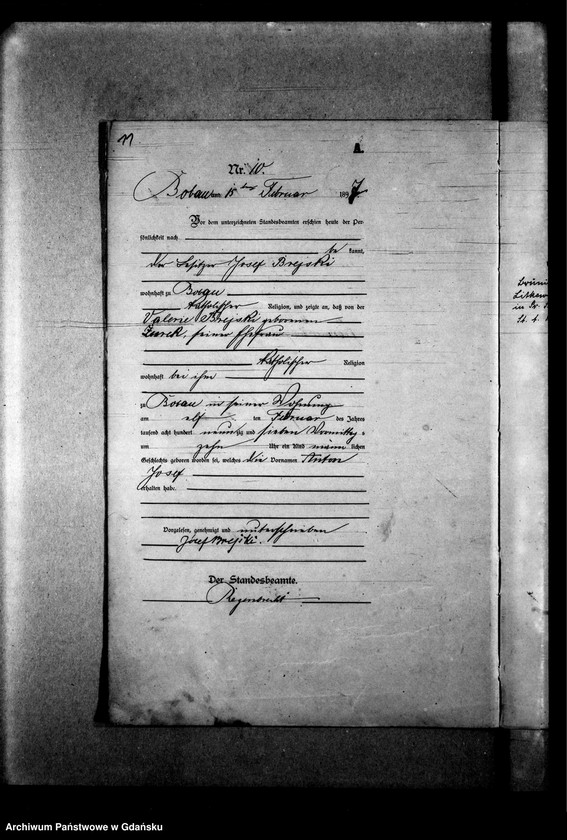 11
A.
Nr. 10.
Bobau am 15ten Februar 1897
Vor dem unterzeichneten Standesbeamten erschien heute der Per-
sönlichkeit nach
be kannt,
der Besitzer Josef Brejski
wohnhaft zu Bobau
katholischer Religion, und zeigte an, daß von der
Valerie Brejski geborenen
Turek, seiner Ehefrau
katholischer Religion
wohnhaft bei ihm
zu Bobau in seiner Wohnung
am elf ten Februar des Jahres
tausend acht hundert neunzig und sieben Vormittags
um zehn Uhr ein Kind männ lichen
Geschlechts geboren worden sei, welches die Vornamen Anton
Josef
erhalten habe.
Vorgelesen, genehmigt und unterschrieben
Josef Brejski.
Der Standesbeamte.
in
Archiwum Państwowe w Gdańsku